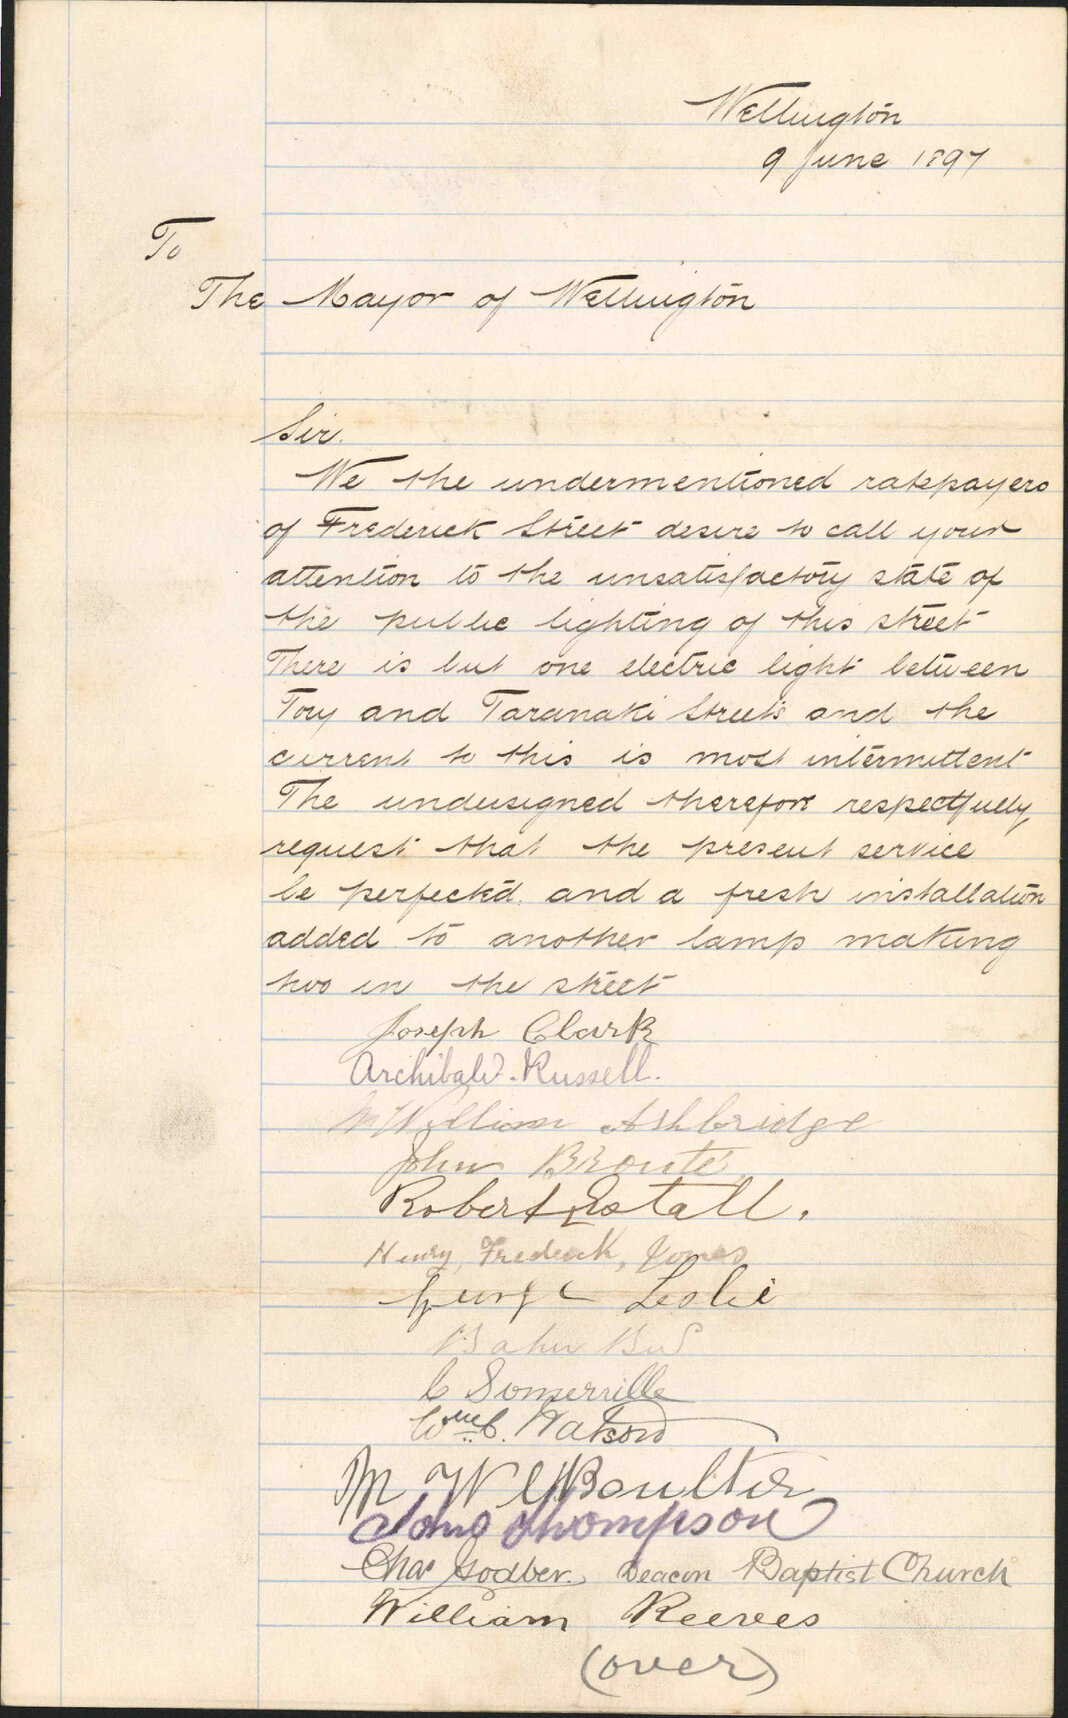 Wellington
9 June 1897
To
The Mayor of Wellington
Sir.
We the undermentioned ratepayers
of Frederick Street desire to call your
attention to the unsatisfactory state of
the public lighting of this street
There is but one electric light between
Tory and Taranaki Streets and the
current to this is most intermittent
The undersigned therefore respectfully
request that the present service
be perfected and a fresh installation
added to another lamp making
two in the street
Joseph Clark
Archibald. Russell.
William Ashbridge
John Bronte
Robert Estall.
Henry, Frederick, Jones
George Leslie
C Somerville
Wm C. Watson
M W Boulter
John Thompson
Chas Godber. Deacon Baptist Church
William Reeves
(over)